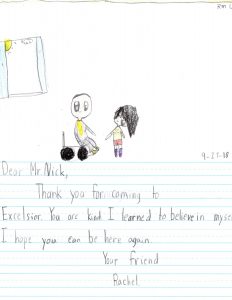 Rm
9-27-18
Dear Mr. Nick,
Thank you for coming to
Excelsior. You are kind. I learned to believe in myse
I hope you can be here again.
Your friend
Rachel